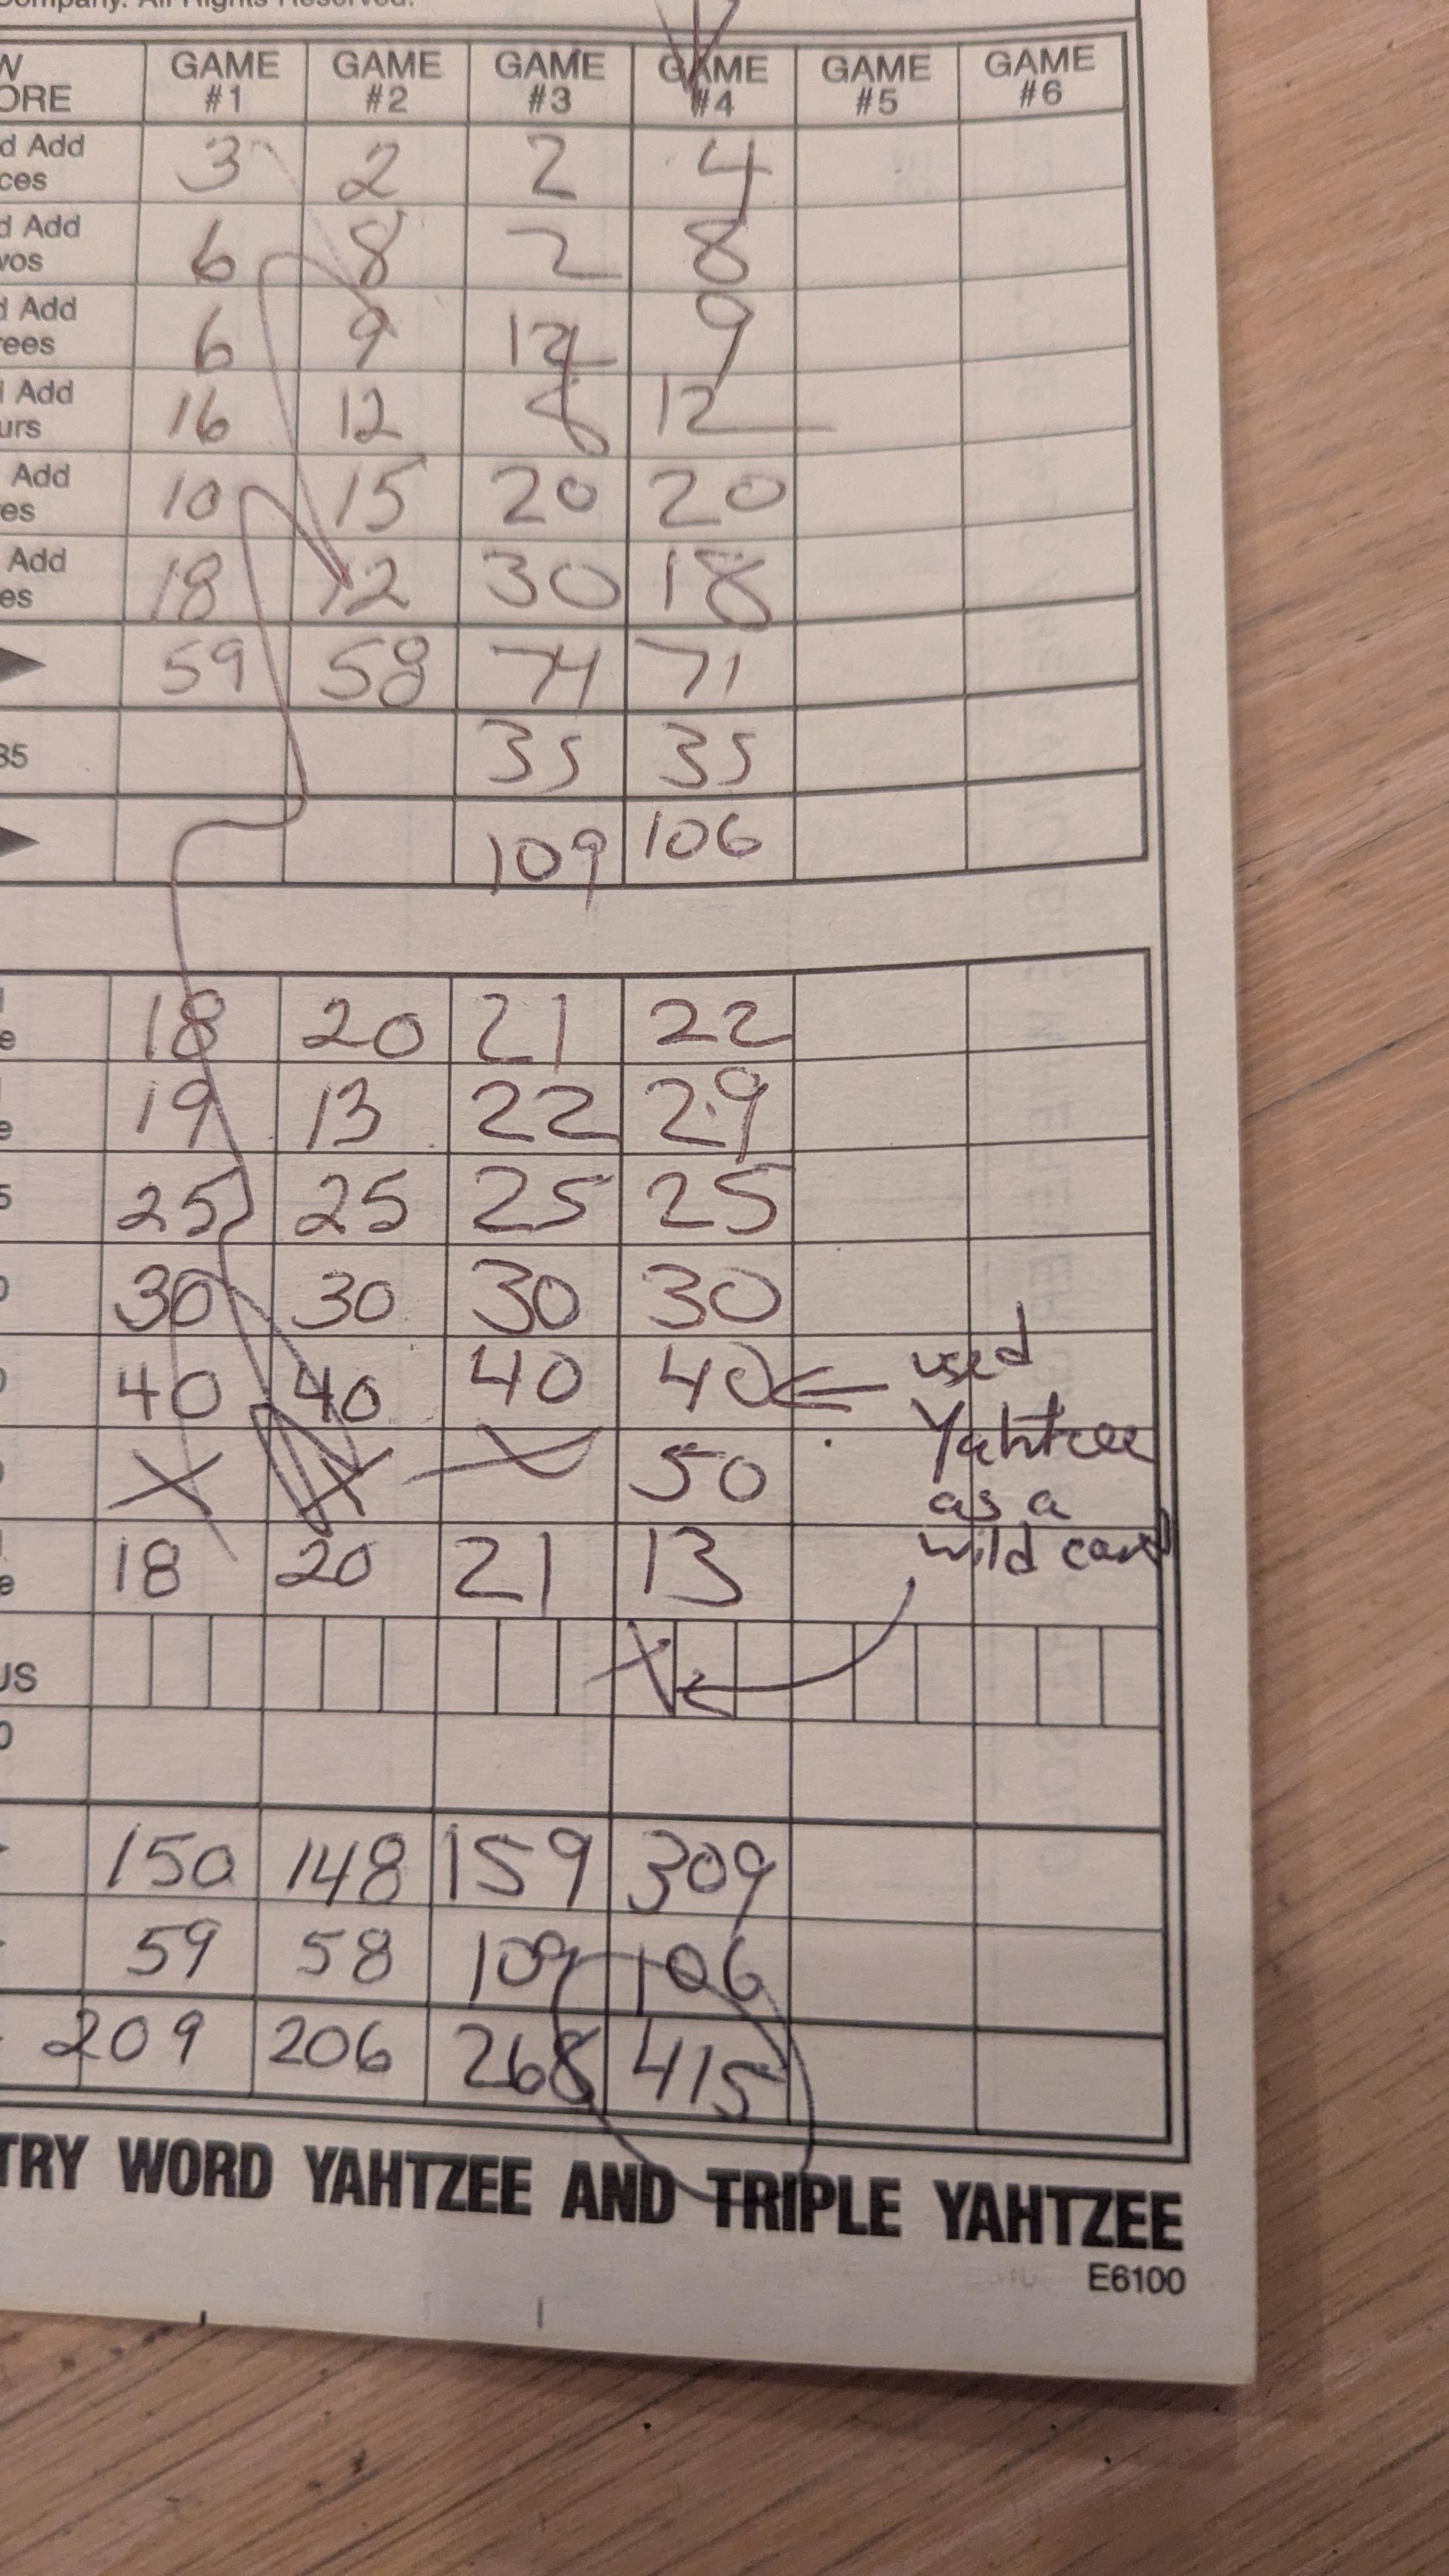 Company. All Rights Reserved.
W GAME GAME GAME GAME GAME GAME
ORE #1 #2 #3 #4 #5 #6
d Add
ces 3 2 2 4
d Add
vos 6 8 2 8
d Add
rees 6 9 12 9
l Add
urs 16 12 8 12
Add
es 10 15 20 20
Add
es 18 12 30 18
59 58 74 71
35 35 35
109 106
e 18 20 21 22
e 19 13 22 29
5 25 25 25 25
0 30 30 30 30
0 40 40 40 40 ← used
Yahtzee
0 X X 50 as a
wild card
e 18 20 21 13
US X
0
150 148 159 309
59 58 109 106
209 206 268 415
TRY WORD YAHTZEE AND TRIPLE YAHTZEE
E6100